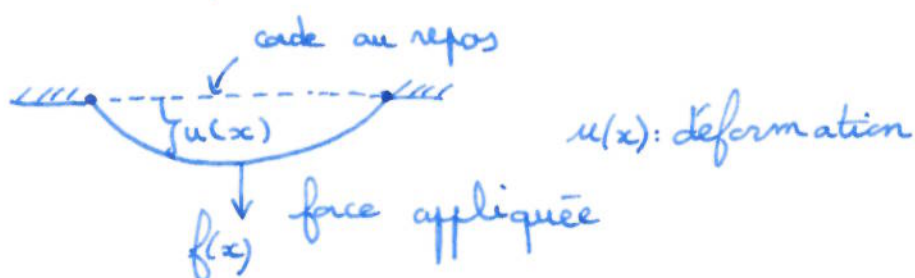 corde au repos
u(x)
u(x): déformation
f(x) force appliquée